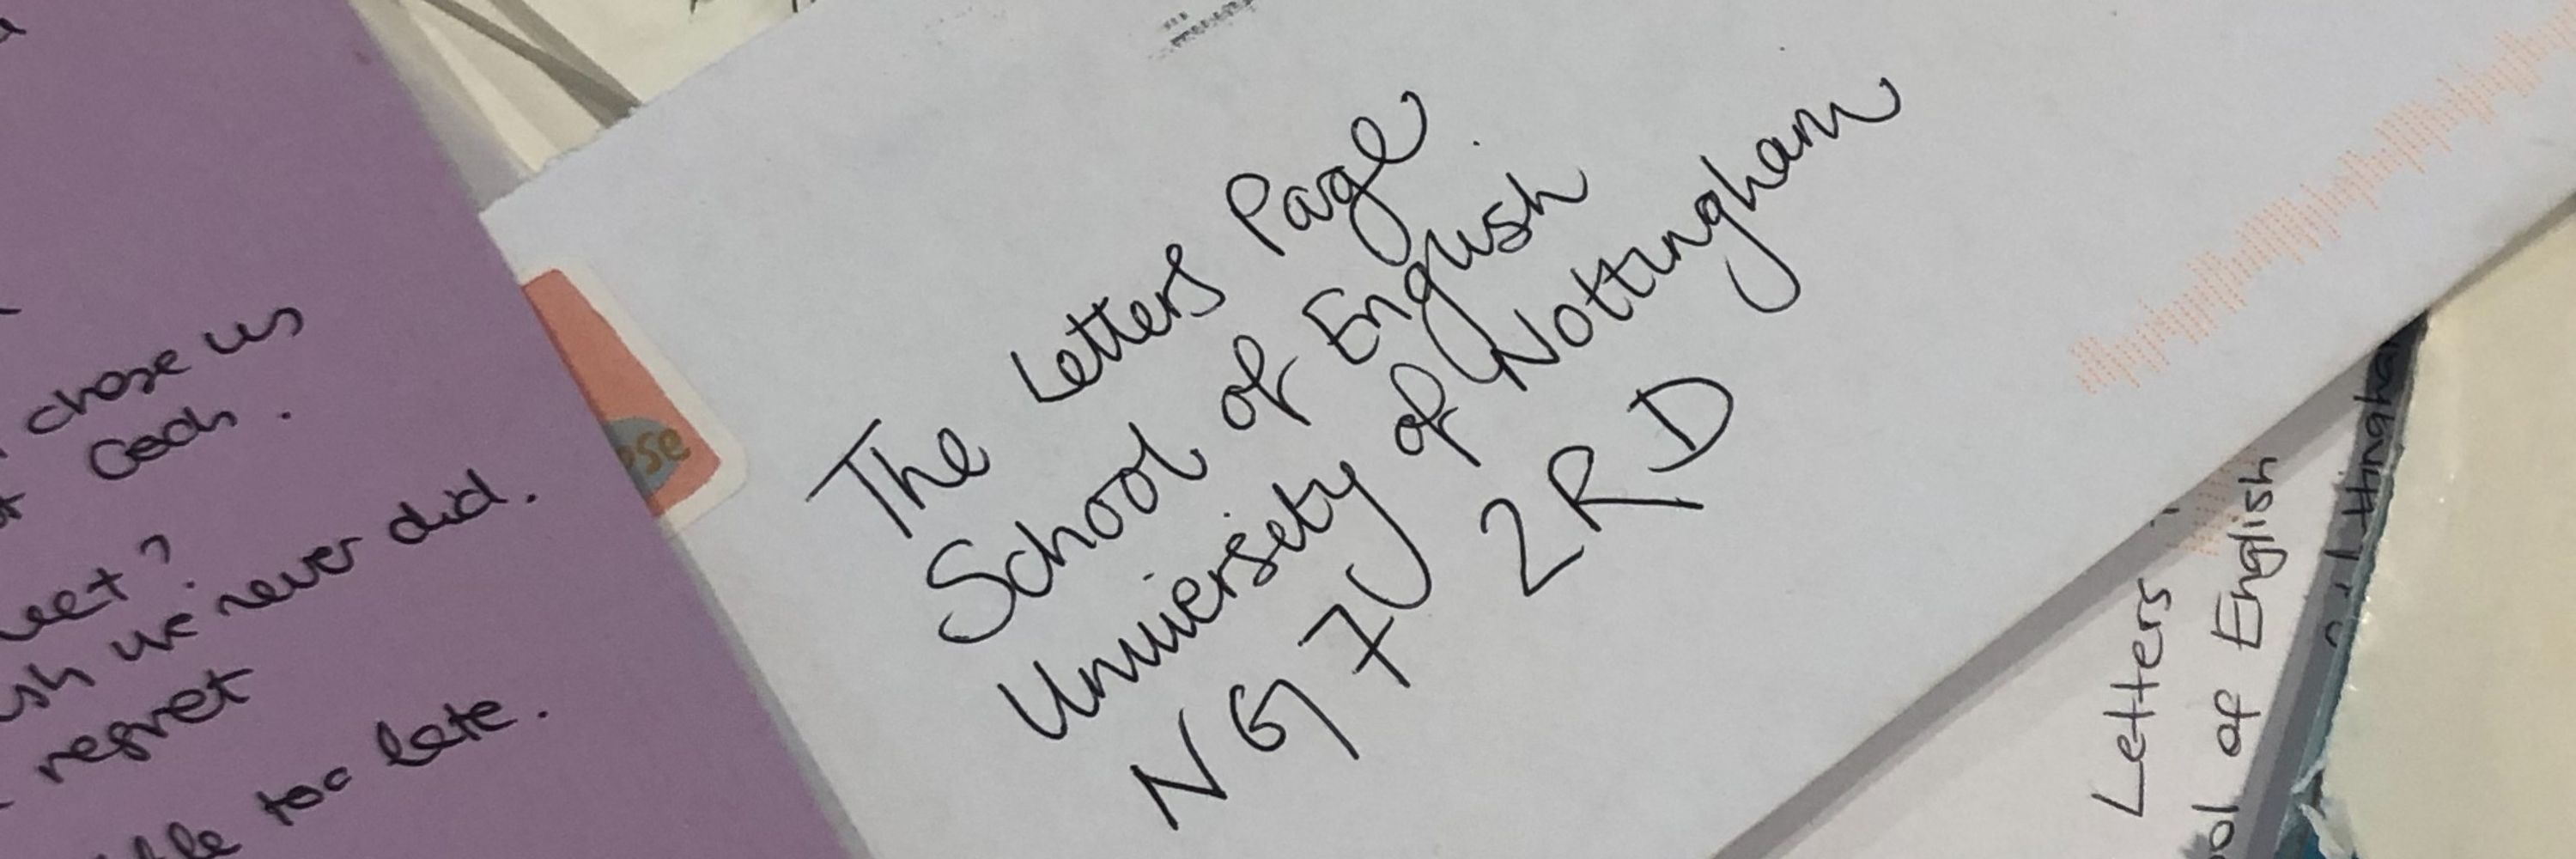 chose us
Each.
meet?
we never did.
regret
too late.
The Letters Page
School of English
University of Nottingham
NG7 2RD
Letters
of English